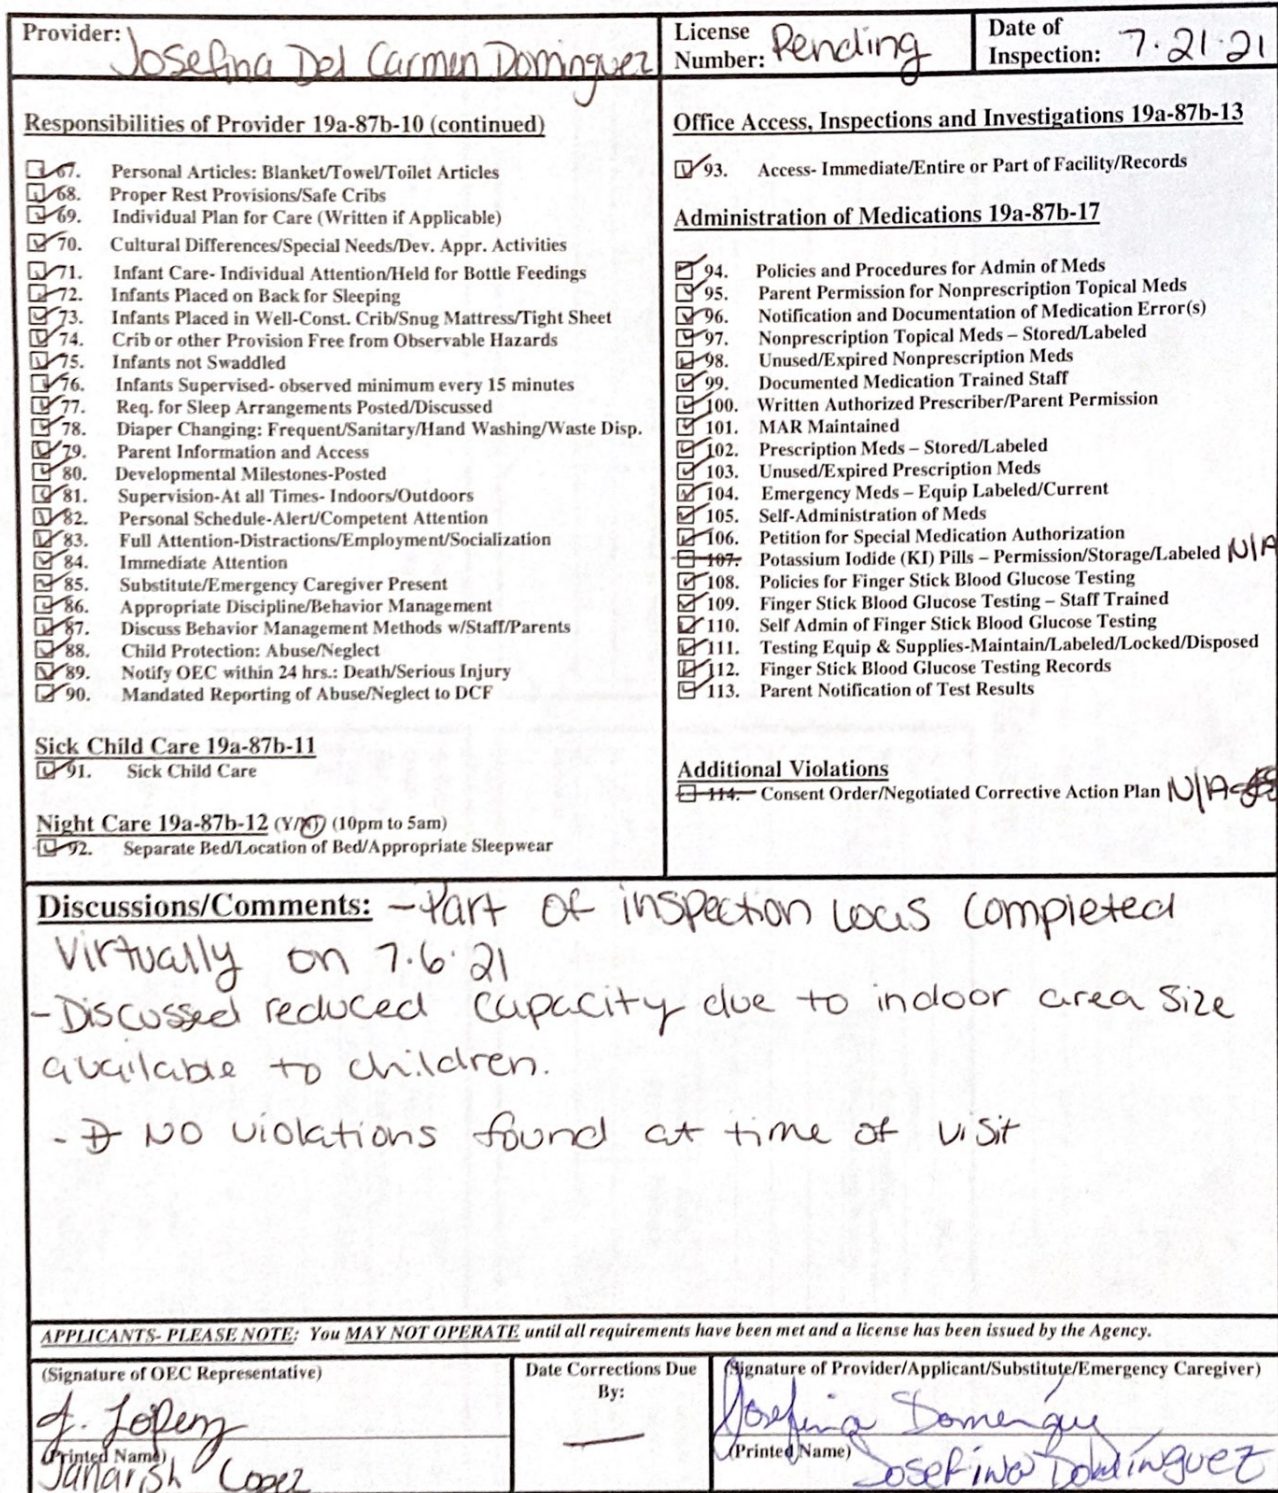 Provider: Josefina Del Carmen Dominguez
License Number: Pending
Date of Inspection: 7.21.21
Responsibilities of Provider 19a-87b-10 (continued)
67. Personal Articles: Blanket/Towel/Toilet Articles
68. Proper Rest Provisions/Safe Cribs
69. Individual Plan for Care (Written if Applicable)
70. Cultural Differences/Special Needs/Dev. Appr. Activities
71. Infant Care- Individual Attention/Held for Bottle Feedings
72. Infants Placed on Back for Sleeping
73. Infants Placed in Well-Const. Crib/Snug Mattress/Tight Sheet
74. Crib or other Provision Free from Observable Hazards
75. Infants not Swaddled
76. Infants Supervised- observed minimum every 15 minutes
77. Req. for Sleep Arrangements Posted/Discussed
78. Diaper Changing: Frequent/Sanitary/Hand Washing/Waste Disp.
79. Parent Information and Access
80. Developmental Milestones-Posted
81. Supervision-At all Times- Indoors/Outdoors
82. Personal Schedule-Alert/Competent Attention
83. Full Attention-Distractions/Employment/Socialization
84. Immediate Attention
85. Substitute/Emergency Caregiver Present
86. Appropriate Discipline/Behavior Management
87. Discuss Behavior Management Methods w/Staff/Parents
88. Child Protection: Abuse/Neglect
89. Notify OEC within 24 hrs.: Death/Serious Injury
90. Mandated Reporting of Abuse/Neglect to DCF
Sick Child Care 19a-87b-11
91. Sick Child Care
Night Care 19a-87b-12 (Y/N) (10pm to 5am)
92. Separate Bed/Location of Bed/Appropriate Sleepwear
Office Access, Inspections and Investigations 19a-87b-13
93. Access- Immediate/Entire or Part of Facility/Records
Administration of Medications 19a-87b-17
94. Policies and Procedures for Admin of Meds
95. Parent Permission for Nonprescription Topical Meds
96. Notification and Documentation of Medication Error(s)
97. Nonprescription Topical Meds – Stored/Labeled
98. Unused/Expired Nonprescription Meds
99. Documented Medication Trained Staff
100. Written Authorized Prescriber/Parent Permission
101. MAR Maintained
102. Prescription Meds – Stored/Labeled
103. Unused/Expired Prescription Meds
104. Emergency Meds – Equip Labeled/Current
105. Self-Administration of Meds
106. Petition for Special Medication Authorization
107. Potassium Iodide (KI) Pills – Permission/Storage/Labeled N/A
108. Policies for Finger Stick Blood Glucose Testing
109. Finger Stick Blood Glucose Testing – Staff Trained
110. Self Admin of Finger Stick Blood Glucose Testing
111. Testing Equip & Supplies-Maintain/Labeled/Locked/Disposed
112. Finger Stick Blood Glucose Testing Records
113. Parent Notification of Test Results
Additional Violations
114. Consent Order/Negotiated Corrective Action Plan N/A
Discussions/Comments: - Part of inspection was completed
virtually on 7.6.21
- Discussed reduced capacity due to indoor area size
available to children.
- NO violations found at time of visit
APPLICANTS- PLEASE NOTE: You MAY NOT OPERATE until all requirements have been met and a license has been issued by the Agency.
(Signature of OEC Representative)
J. Lopez
(Printed Name)
Janarish Lopez
Date Corrections Due
By:
—
(Signature of Provider/Applicant/Substitute/Emergency Caregiver)
Josefina Domingu
(Printed Name) Josefina Domínguez